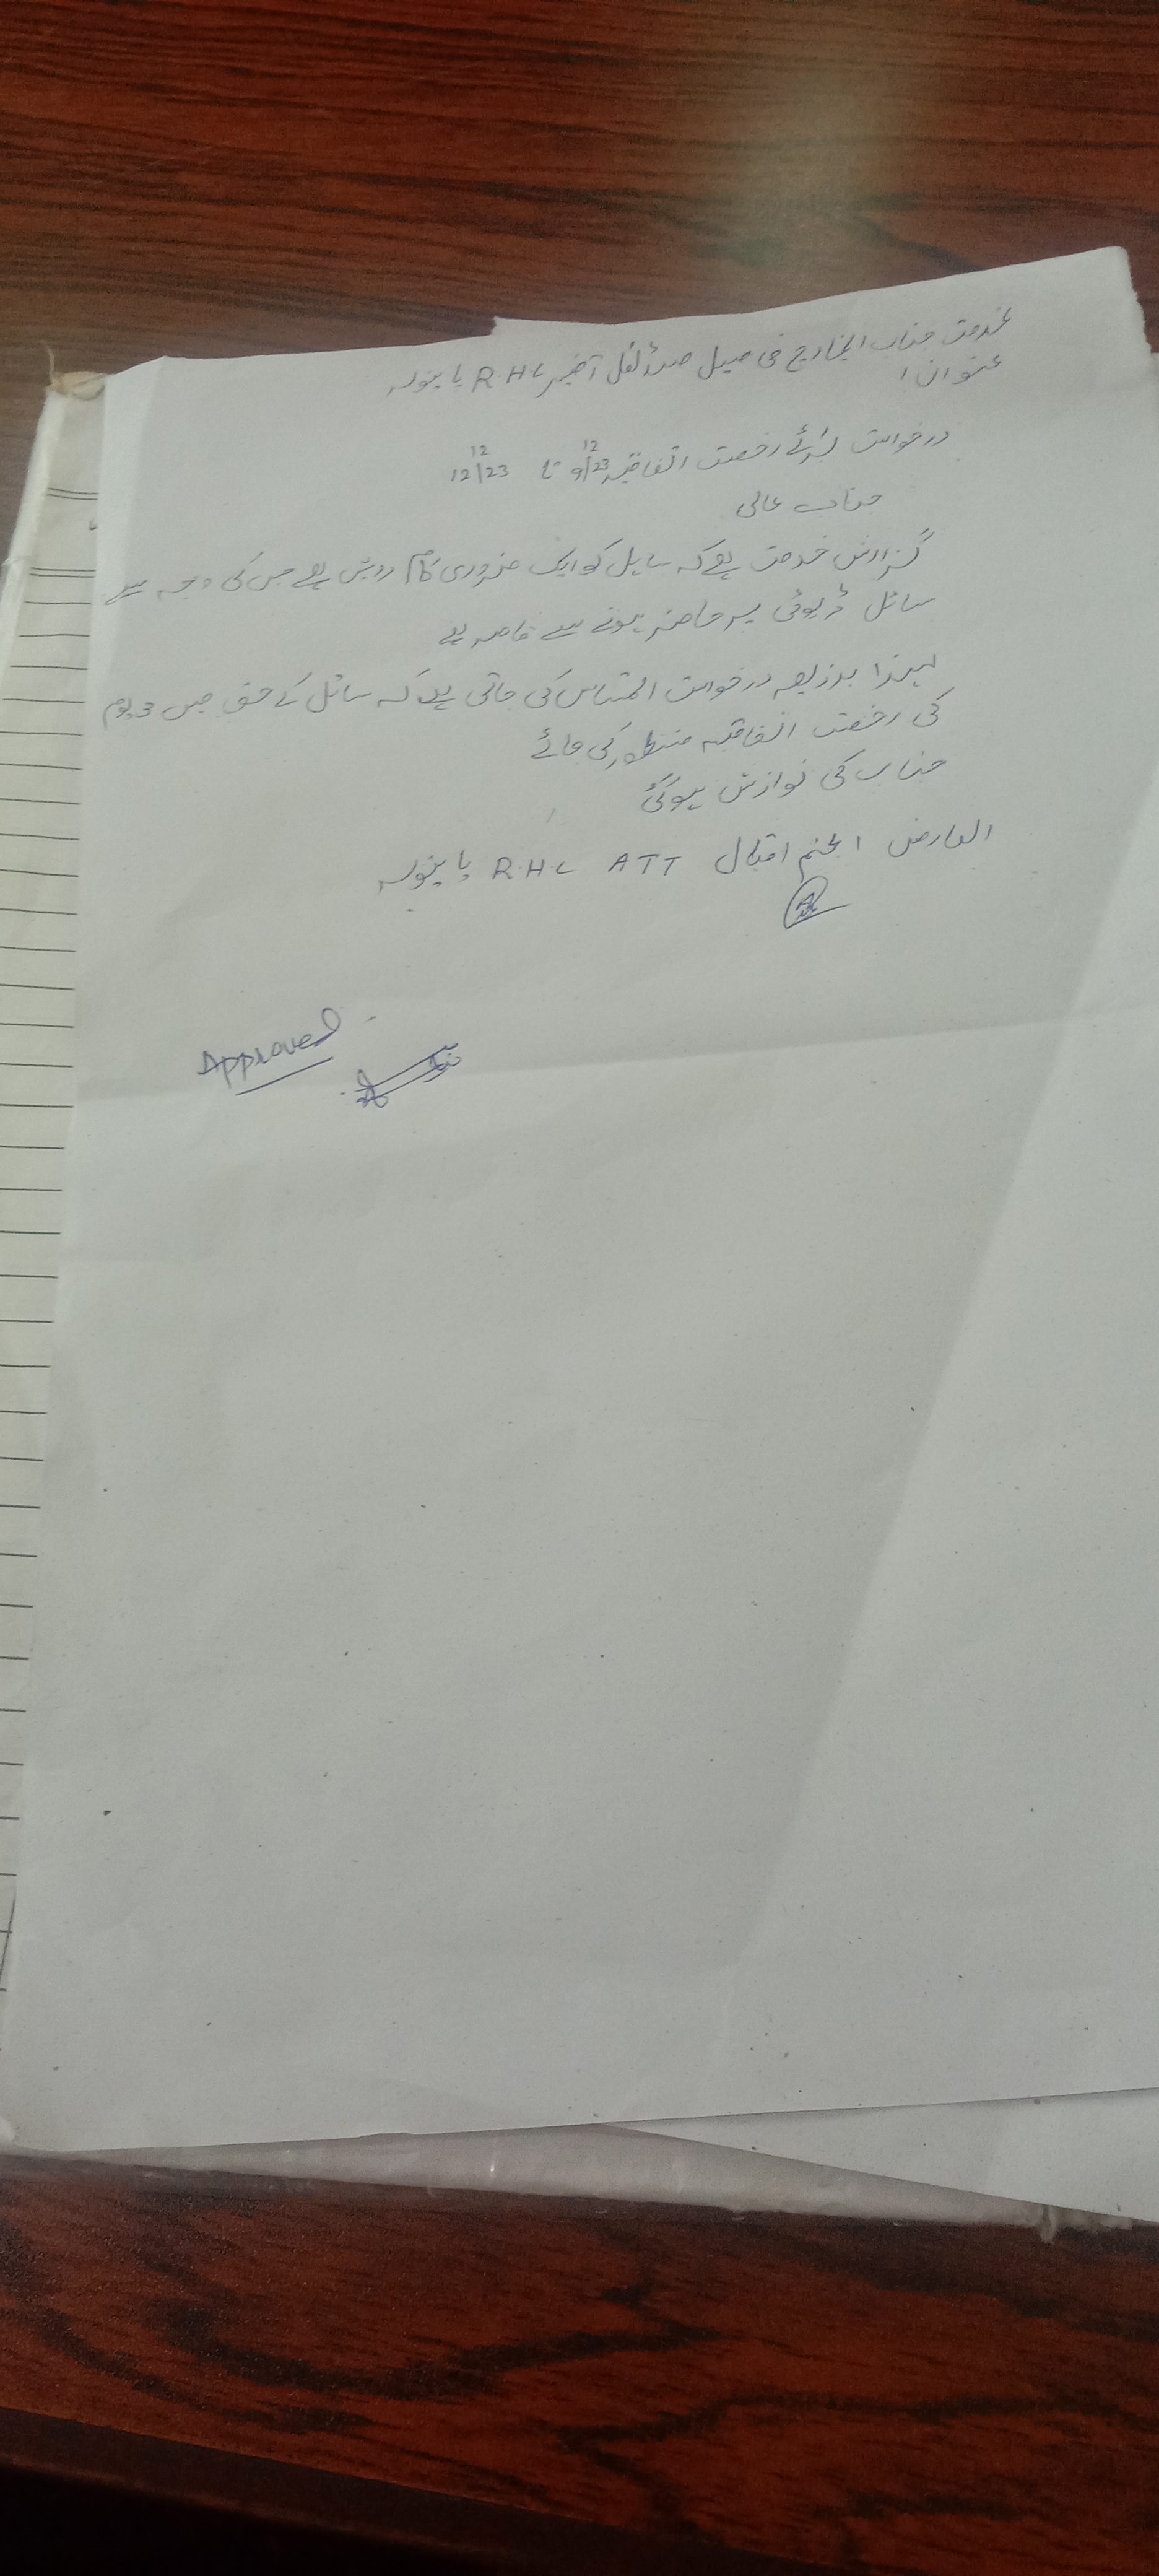 بخدمت جناب انچارج فی میل میڈیکل آفیسر R.H.C پاینولہ
عنوان:
درخواست برائے رخصت اتفاقیہ 9/12/23 تا 12/12/23
جناب عالی
گزارش خدمت ہے کہ سایل کو ایک ضروری کام درپیش ہے جس کی وجہ سے
سائل ڈیوٹی پر حاضر ہونے سے قاصر ہے
لہذا بذریعہ درخواست التماس کی جاتی ہے کہ سائل کے حق میں 3 یوم
کی رخصت اتفاقیہ منظور کی جائے
جناب کی نوازش ہوگئی
العارض انجم اقبال ATT R.H.C پاینولہ
Approved